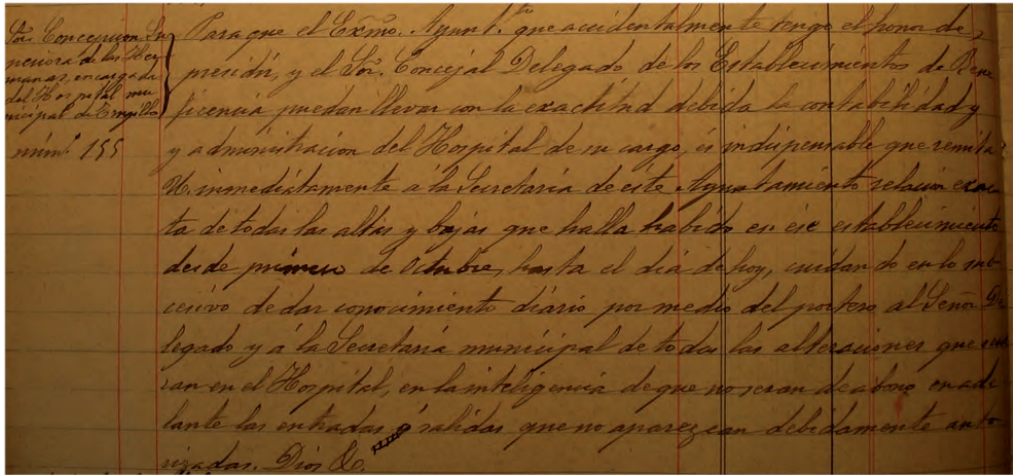 Sor. Concepcion Su
periora de las Her
manas, encargada
del Hospital mu
nicipal de
núm. 155
Para que el Exmo. Ayunt.º que accidentalmente tengo el honor de
presidir, y el Sor. Concejal Delegado de los Establecimientos de Bene
ficencia puedan llevar con la exactitud debida la contabilidad y
y administracion del Hospital de su cargo, és indispensable que remita
U. inmediatamente á la Secretaría de este Ayuntamiento relacion exac
ta de todas las altas y bajas que halla habido en ése establecimiento
desde primero de Octubre, hasta el dia de hoy, cuidando en lo sub
cesivo de dar conocimiento diário por medio del portero al Señor De
legado y á la Secretaría municipal de todas las alteraciones que
ran en el Hospital, en la inteligencia de que no seran de abono en ade
lante las entradas ó salidas que no aparezcan debidamente auto
rizadas. Dios &c.